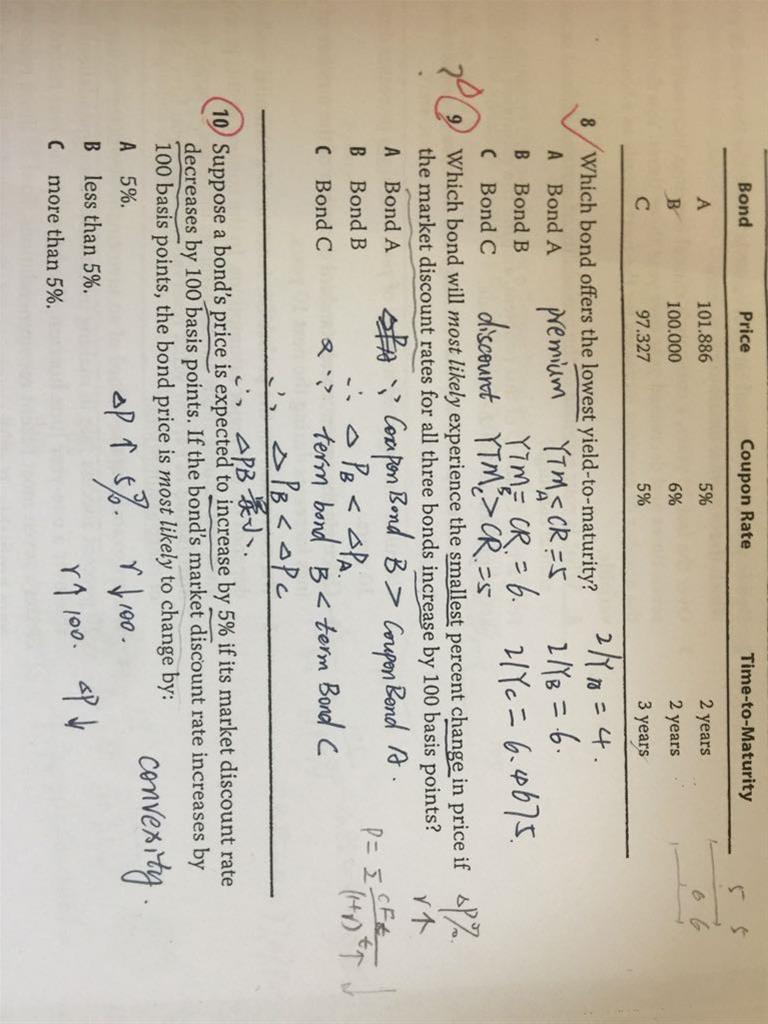 Bond Price Coupon Rate Time-to-Maturity
A 101.886 5% 2 years
B 100.000 6% 2 years
C 97.327 5% 3 years
5 5
6 6
8 Which bond offers the lowest yield-to-maturity?
A Bond A premium YTM A < CR = 5
B Bond B YTM B = CR = 6.
C Bond C discount YTM C > CR = 5
= 4.
I/Y B = 6.
I/Y C = 6.00675.
? 9 Which bond will most likely experience the smallest percent change in price if
the market discount rates for all three bonds increase by 100 basis points?
ΔP%
r↑
A Bond A ∵ Coupon Bond B > Coupon Bond A.
B Bond B ∴ ΔP B < ΔP A.
C Bond C ∵ term bond B < term Bond C
∴ ΔP B < ΔP C
∴ ΔPB 最小.
P = Σ CFt / (1+r)^t ↑ ↓
10 Suppose a bond's price is expected to increase by 5% if its market discount rate
decreases by 100 basis points. If the bond's market discount rate increases by
100 basis points, the bond price is most likely to change by:
A 5%.
B less than 5%.
C more than 5%.
convexity.
ΔP ↑ 5%. r ↓ 100.
r ↑ 100. ΔP ↓